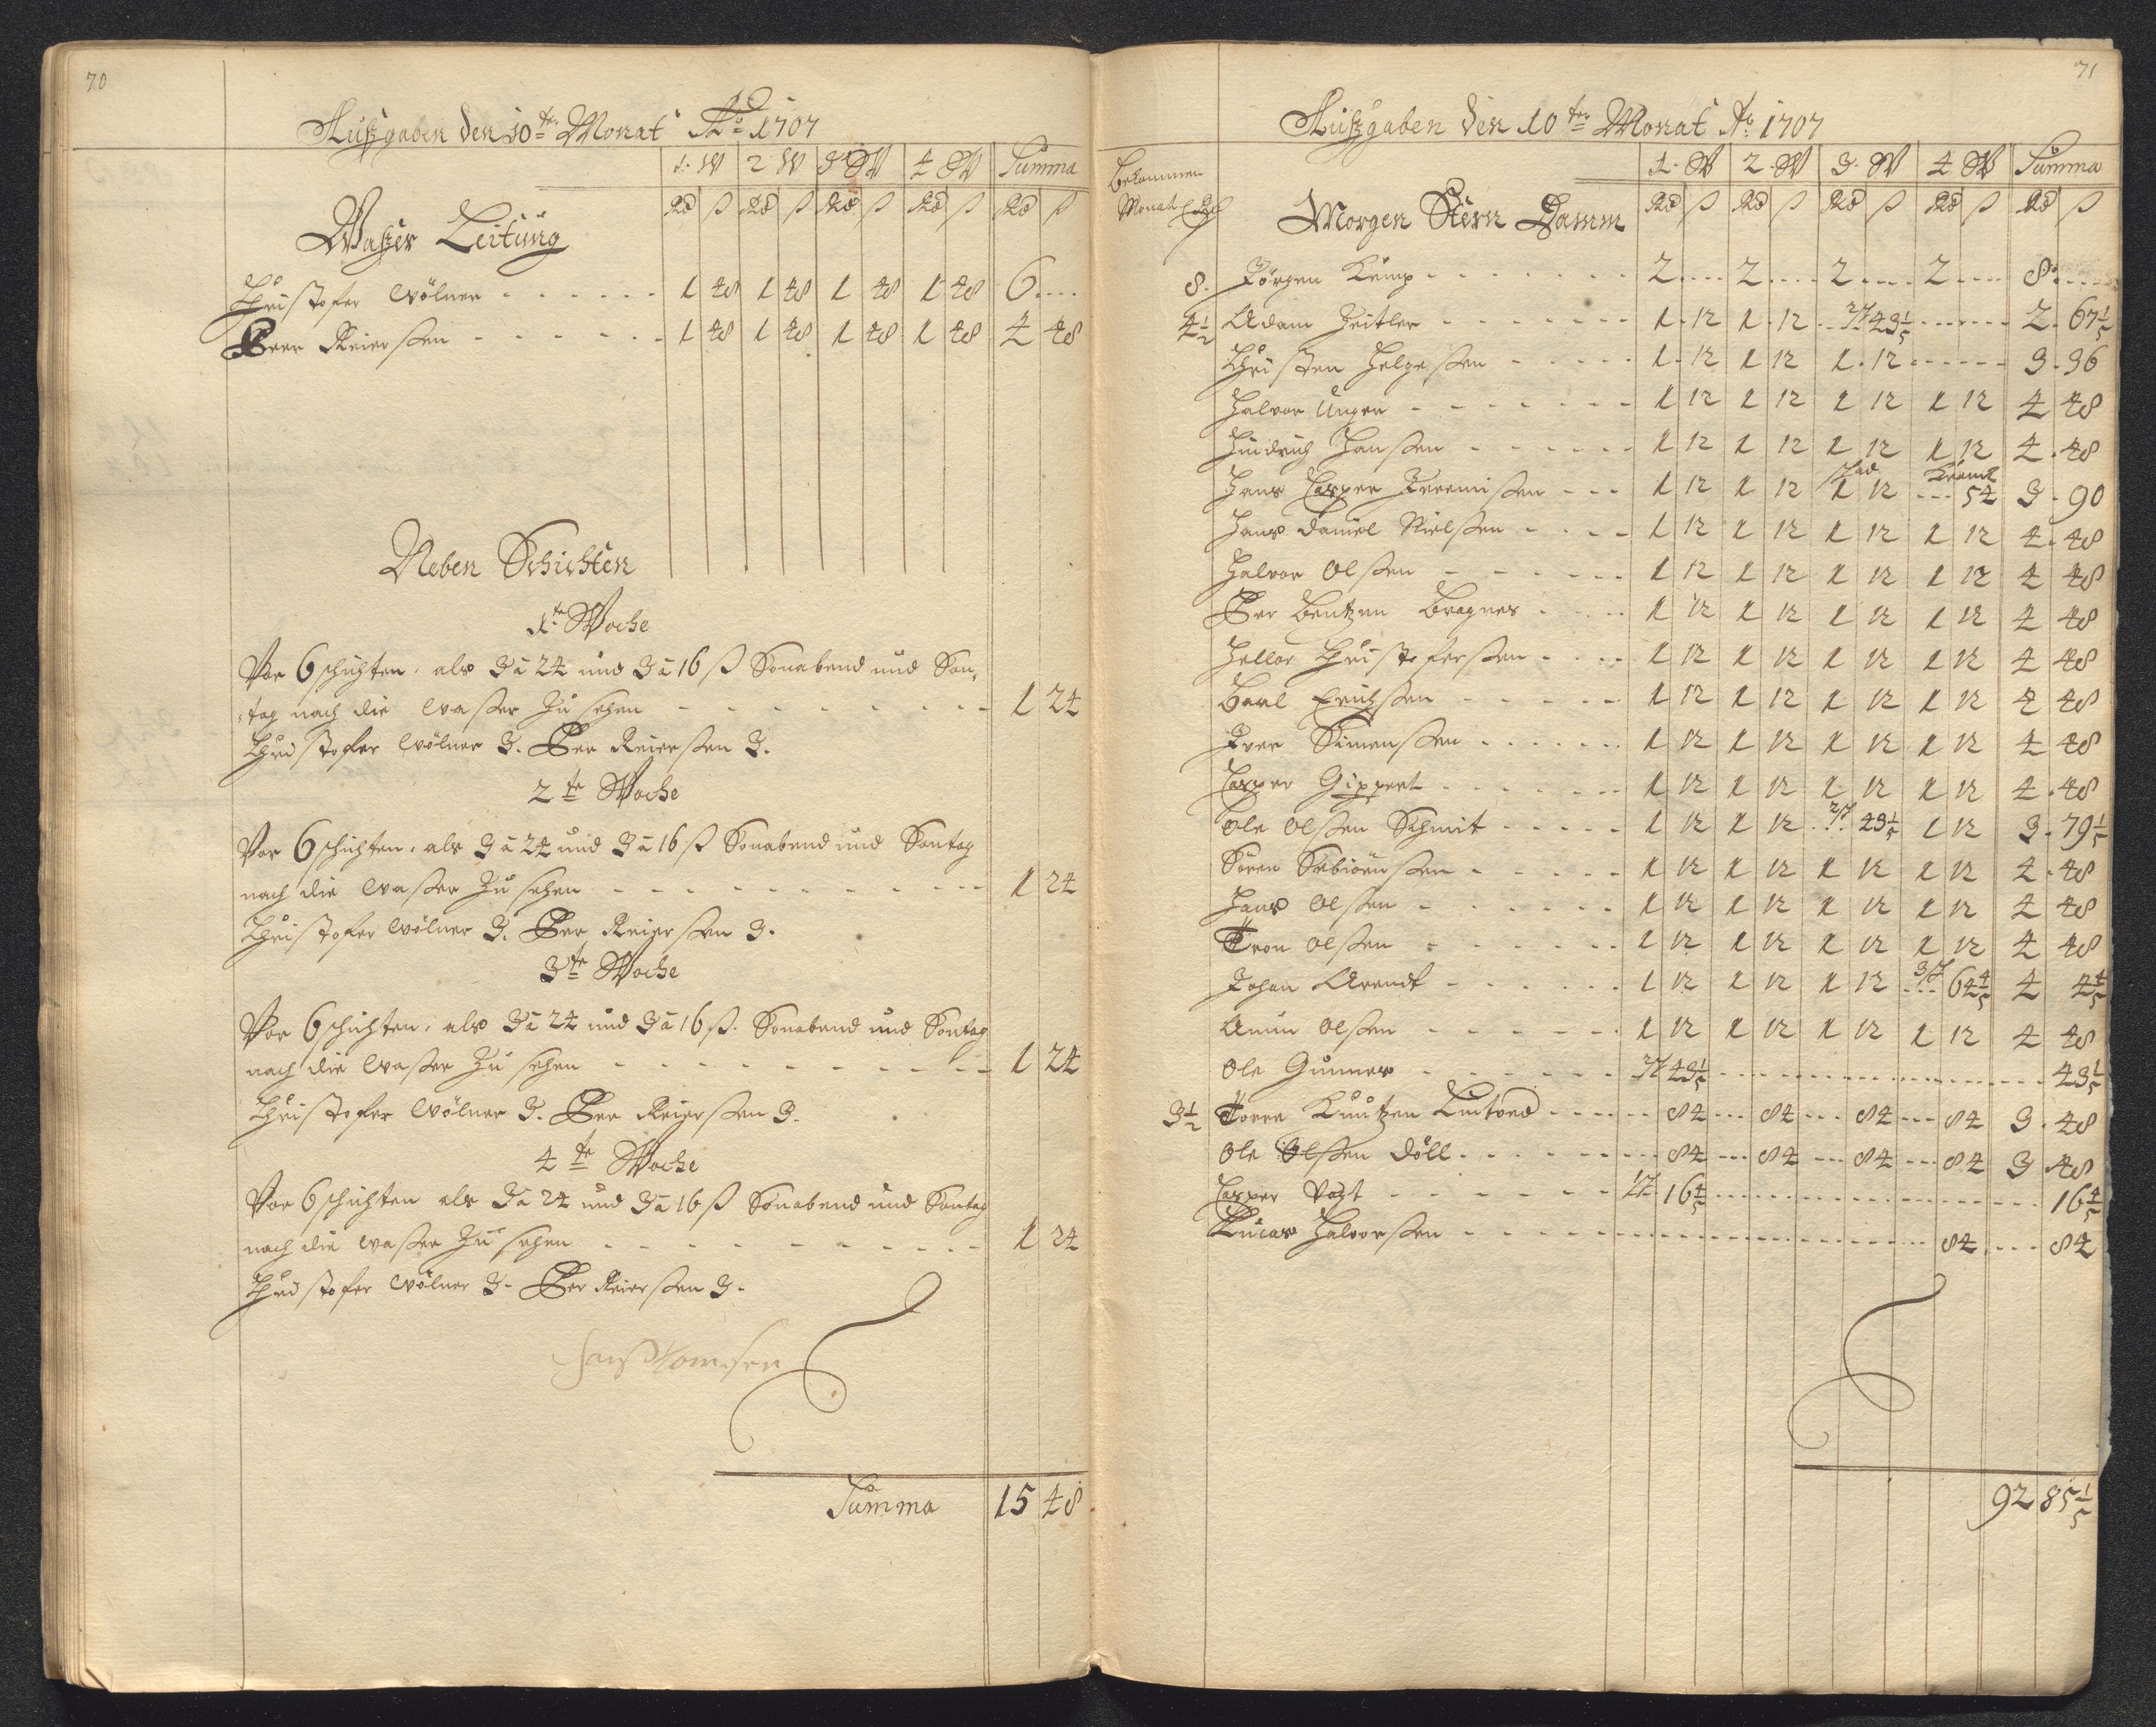 70
Außgaben den 10te Monat Ao 1707
1. W 2 W 3 W 4 W Summa
Rd ß Rd ß Rd ß Rd ß Rd ß
Waßer Leitung
Christofer Wölner - - - - - - 1 48 1 48 1 48 1 48 6 ....
Peer Reierßen - - - - - - 1 48 1 48 1 48 1 48 4 48
Neben Schichten
1te Woche
Vor 6 schichten, als 3 a 24 und 3 a 16 ß Sonabend und Son-
tag nach die Waßer zu sehen - - - - - - - - 1 24
Christofer Wölner 3. Peer Reierßen 3.
2te Woche
Vor 6 schichten, als 3 a 24 und 3 a 16 ß Sonabend und Sontag
nach die Waßer zu sehen - - - - - - - - - - 1 24
Christofer Wölner 3. Peer Reierßen 3.
3te Woche
Vor 6 schichten, als 3 a 24 und 3 a 16 ß. Sonabend und Sontag
nach die Waßer zu sehen - - - - - - - - - 1 24
Christofer Wölner 3. Peer Reierßen 3.
4te Woche
Vor 6 schichten als 3 a 24 und 3 a 16 ß Sonabend und Sontag
nach die Waßer zu sehen - - - - - - - - - 1 24
Christofer Wölner 3. Per Reierßen 3.
Summa 15 48
71
Außgaben den 10te Monat Ao 1707
Bekommen
Monatl
1. W 2. W 3. W 4 W Summa
Rd ß Rd ß Rd ß Rd ß Rd ß
Morgen Stern Damm
8. Jörgen Kump - - - - - - - 2 .... 2 .... 2 .... 2 .... 8. ....
4 1/2 Adam Zeitler - - - - - - - 1. 12 1. 12 .. 2/7 43 1/5 ........ 2. 67 1/5
Christen Helgeßen - - - - 1. 12 1 12 1. 12 ....... 3. 36
Halvor Unger - - - - - - - 1 12 1 12 1 12 1 12 4 48
Hindrich Hanßen - - - - - - 1 12 1 12 1 12 1 12 4. 48
Hans Casper Jeremißen - - - 1 12 1 12 1 12 - - - 54 3. 90
Hans Daniel Nielßen - - - - 1 12 1 12 1 12 1 12 4. 48
Halvor Olßen - - - - - - 1 12 1 12 1 12 1 12 4 48
Per Bentzen Bragnes - - - - 1 12 1 12 1 12 1 12 4 48
Hellor Christoferßen - - - - 1 12 1 12 1 12 1 12 4 48
Paal Erichßen - - - - - - 1 12 1 12 1 12 1 12 4 48
Iver Simenßen - - - - - - 1 12 1 12 1 12 1 12 4 48
Casper Gippert - - - - - - 1 12 1 12 1 12 1 12 4. 48
Ole Olßen Schmit - - - - - 1 12 1 12 .. 2/7 43 1/5 1 12 3. 79 1/5
Sören - - - - - 1 12 1 12 1 12 1 12 4. 48
Hans Olßen - - - - - - 1 12 1 12 1 12 1 12 4 48
Tron Olßen - - - - - - 1 12 1 12 1 12 1 12 4 48
Johan Arendt - - - - - - 1 12 1 12 1 12 3/7 64 4/5 4 4 4/5
Amun Olßen - - - - - - 1 12 1 12 1 12 1 12 4 48
Ole Gunner - - - - - - 2/7 43 1/5 .................... 43 1/5
3 1/2 Torre Knutzen - - - - 84 ... 84 ... 84 ... 84 3. 48
Ole Olßen Döll - - - - - 84 ... 84 ... 84 ... 84 3 48
Casper Vogt - - - - - - 1/7 16 4/5 .................... 16 4/5
Lucas Halvorßen - - - - - - .................... 84 .... 84
92 85 1/5